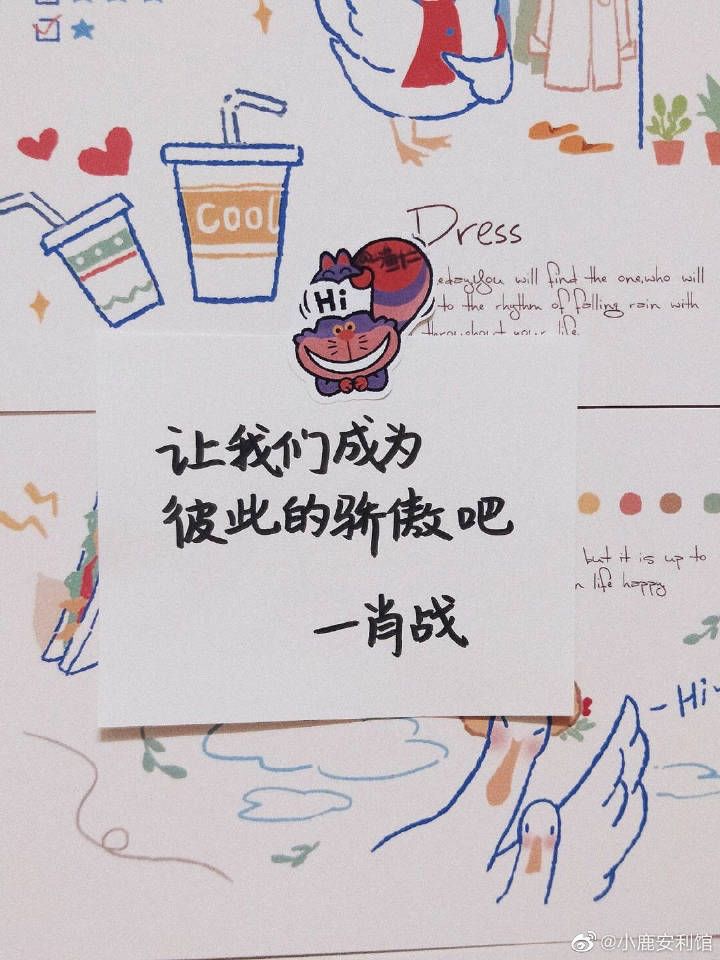 Cool
Dress
Hi
you will find the one,who will
to the rhythm of falling rain with
throughout your life
让我们成为
彼此的骄傲吧
一肖战
but it is up to
life happy
-Hi
@小鹿安利馆